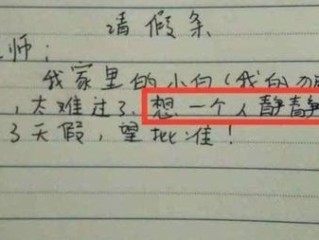 请假条
师：
我家里的小白（我的
，太难过了，想一个人静静
3天假，望批准！